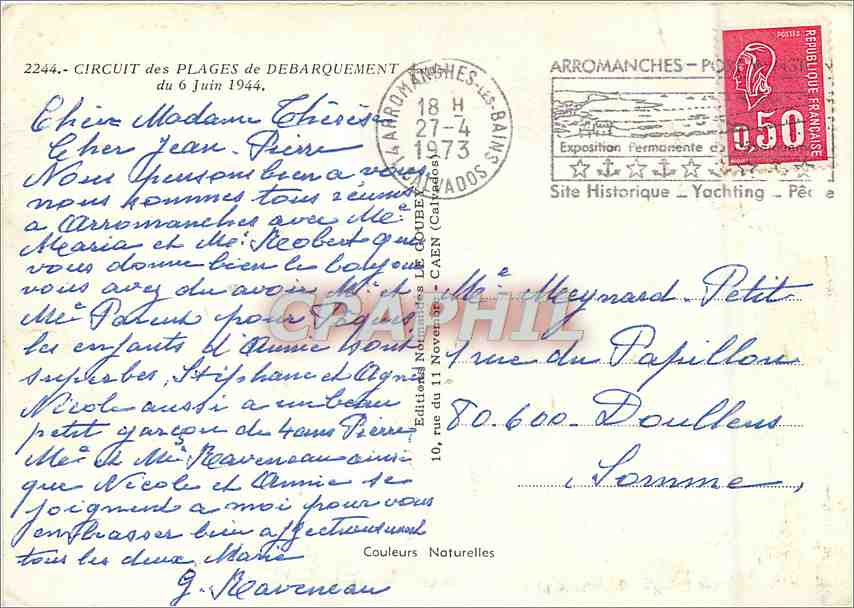 2244.- CIRCUIT des PLAGES de DEBARQUEMENT
du 6 Juin 1944.
Chère Madame Thérèse
Cher Jean-Pierre
Nous pensons bien a vous
nous sommes tous réunis
a Arromanches avec Me
Maria et Mr Robert qui
vous donne bien le bonjour
vous avez du avoir Mr et
Me Parent pour Pâques
les enfants d'Annie sont
superbes, Stéphane et Agnès
Nicole aussi a un beau
petit garçon de 4 ans Pierre
Me et Mr Raveneau ainsi
que Nicole et Annie se
joignent a moi pour vous
embrasser bien affectueusement
tous les deux Marie
G. Raveneau
Couleurs Naturelles
Editions Normandes LE GOUBEY
10, rue du 11 Novembre - CAEN (Calvados)
14 ARROMANCHES-LES-BAINS
18 H
27-4
1973
CALVADOS
ARROMANCHES-
Exposition Permanente du
Site Historique _ Yachting _ Pêche
POSTES
REPUBLIQUE FRANÇAISE
0,50
Me Meynard-Petit
1 rue du Papillon
80.600-Doullens
(Somme)
CPAPHIL